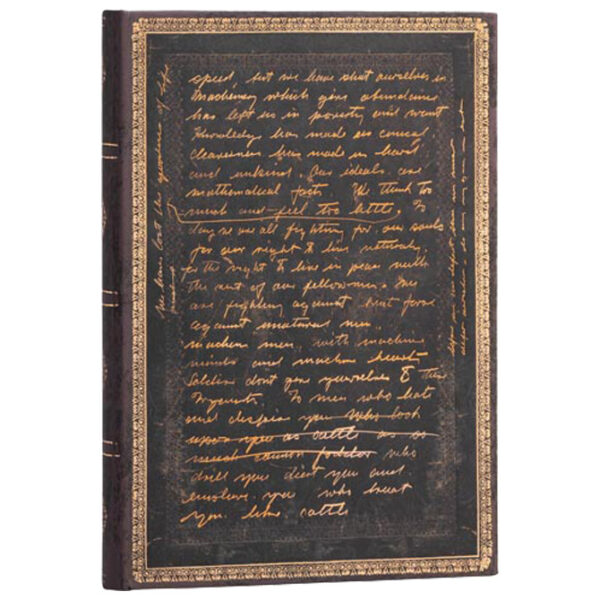 speed, but we have shut ourselves in
Machinery which gives abundance
has left us in poverty and want
Knowledge has made us cynical
cleverness has made us hard
and unkind. Our ideals are
mathematical facts. We think too
much and feel too little. To
day we are all fighting for our souls
for our right to live naturally
for the right to live in peace with
the rest of our fellowmen. We
are fighting against brute force
against unnatural men.
machine men, with machine
minds and machine hearts
Soldiers dont give yourselves to these
To men who hate
and despise you who look
upon you as cattle as
cannon fodder who
drill you diet you and
enslave you who treat
you like cattle
We have lost the